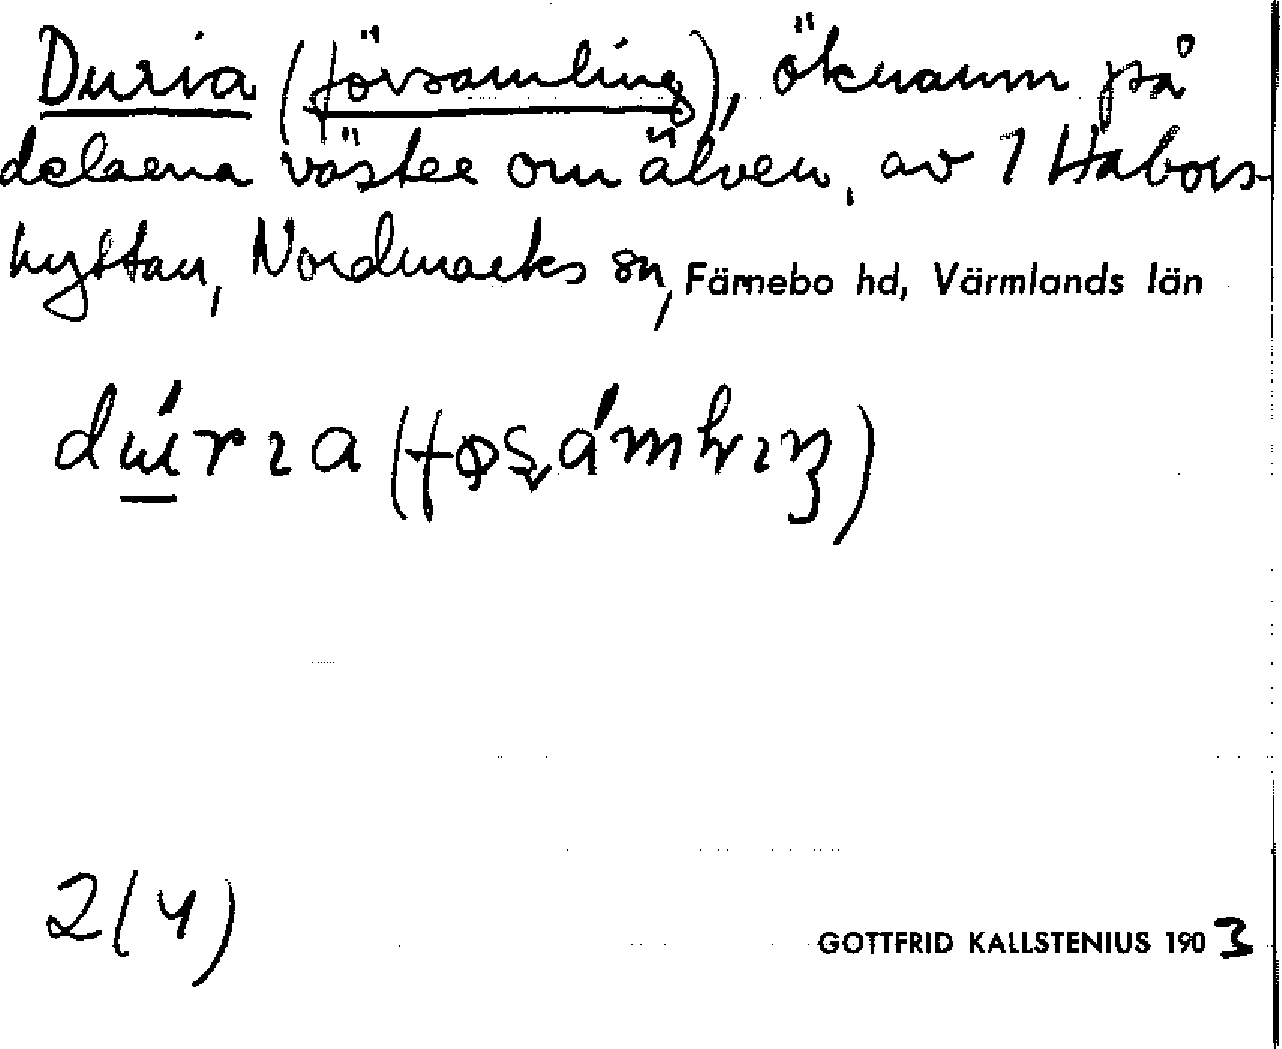 Duria (församling), öknamn på
delarna väster om älven, av 1 Håbors-
hyttan, Nordmarks sn, Färnebo hd, Värmlands län
2(4)
GOTTFRID KALLSTENIUS 1903